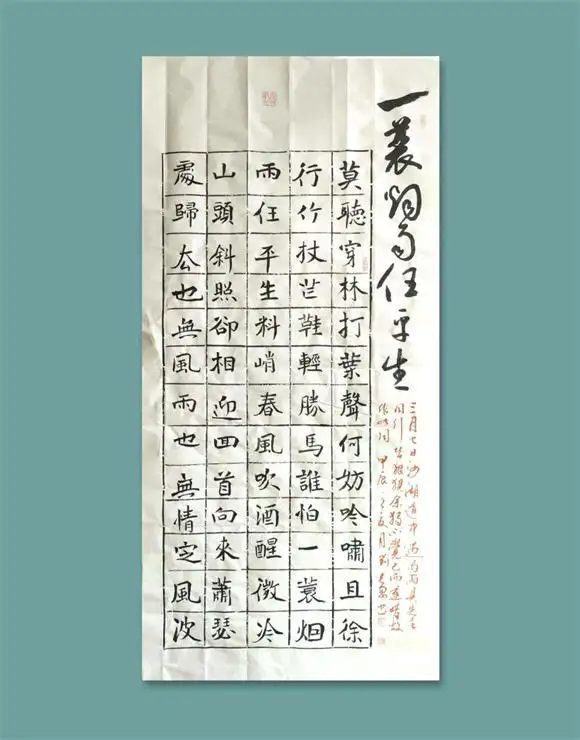 一蓑烟雨任平生
三月七日沙湖道中遇雨雨具先去
同行皆狼狽余獨不覺已而遂晴故
作此詞 甲辰 夏月劉 書
莫聽穿林打葉聲何妨吟嘯且徐
行竹杖芒鞋輕勝馬誰怕一蓑烟
雨任平生料峭春風吹酒醒微冷
山頭斜照卻相迎回首向來蕭瑟
處歸去也無風雨也無情定風波